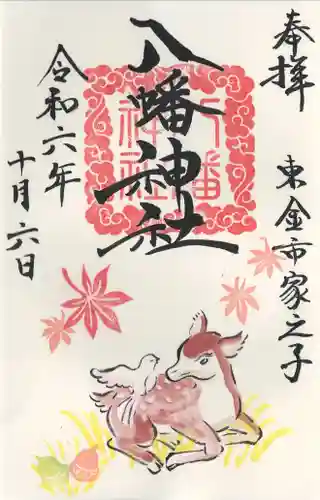 奉拝
東金市家之子
八幡神社
八幡
神社
令和六年
十月六日